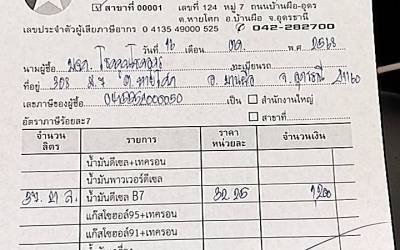 สาขาที่ 00001 เลขที่ 124 หมู่ 7 ถนนบ้านผือ-อุดร
ต.หายโศก อ.บ้านผือ จ.อุดรธานี
เลขประจำตัวผู้เสียภาษีอากร 0 4135 49000 525 042-282700
วันที่ 16 เดือน พ.ศ. 2568
นามผู้ซื้อ ทะเบียนรถ
ที่อยู่ 308 ม.7 ต.หายโศก อ.บ้านผือ จ.อุดรธานี 41160
เลขภาษีของผู้ซื้อ เป็น สำนักงานใหญ่
อัตราภาษีร้อยละ7 สาขาที่
จำนวน ลิตร รายการ ราคา หน่วยละ จำนวนเงิน
น้ำมันดีเซล+เทครอน
น้ำมันพาวเวอร์ดีเซล
น้ำมันดีเซล B7 32.25 1,200
แก๊สโซฮอล์95+เทครอน
แก๊สโซฮอล์91+เทครอน